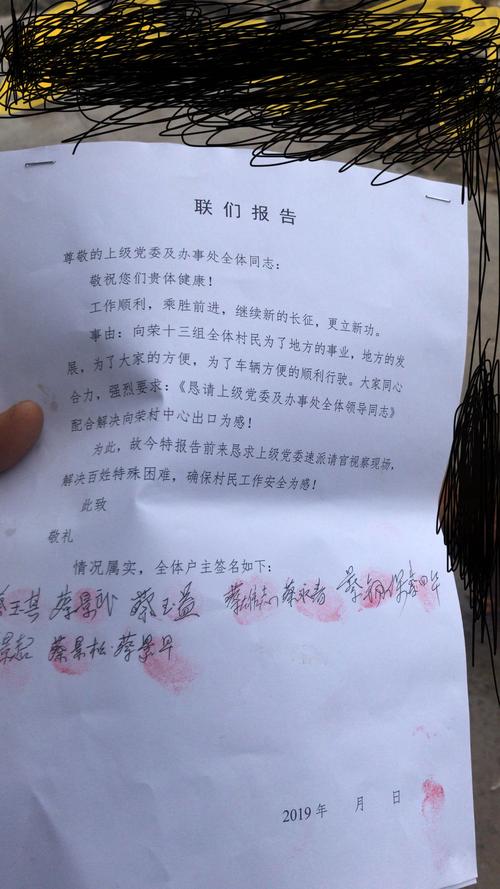 联们报告
尊敬的上级党委及办事处全体同志：
敬祝您们贵体健康！
工作顺利，乘胜前进，继续新的长征，更立新功。
事由：向荣十三组全体村民为了地方的事业，地方的发
展，为了大家的方便，为了车辆方便的顺利行驶。大家同心
合力，强烈要求：《恳请上级党委及办事处全体领导同志》
配合解决向荣村中心出口为感！
为此，故今特报告前来恳求上级党委速派请官视察现场，
解决百姓特殊困难，确保村民工作安全为感！
此致
敬礼
情况属实，全体户主签名如下：
蔡玉其 蔡景民 蔡玉益 蔡永春
蔡景松 蔡景早
2019年 月 日